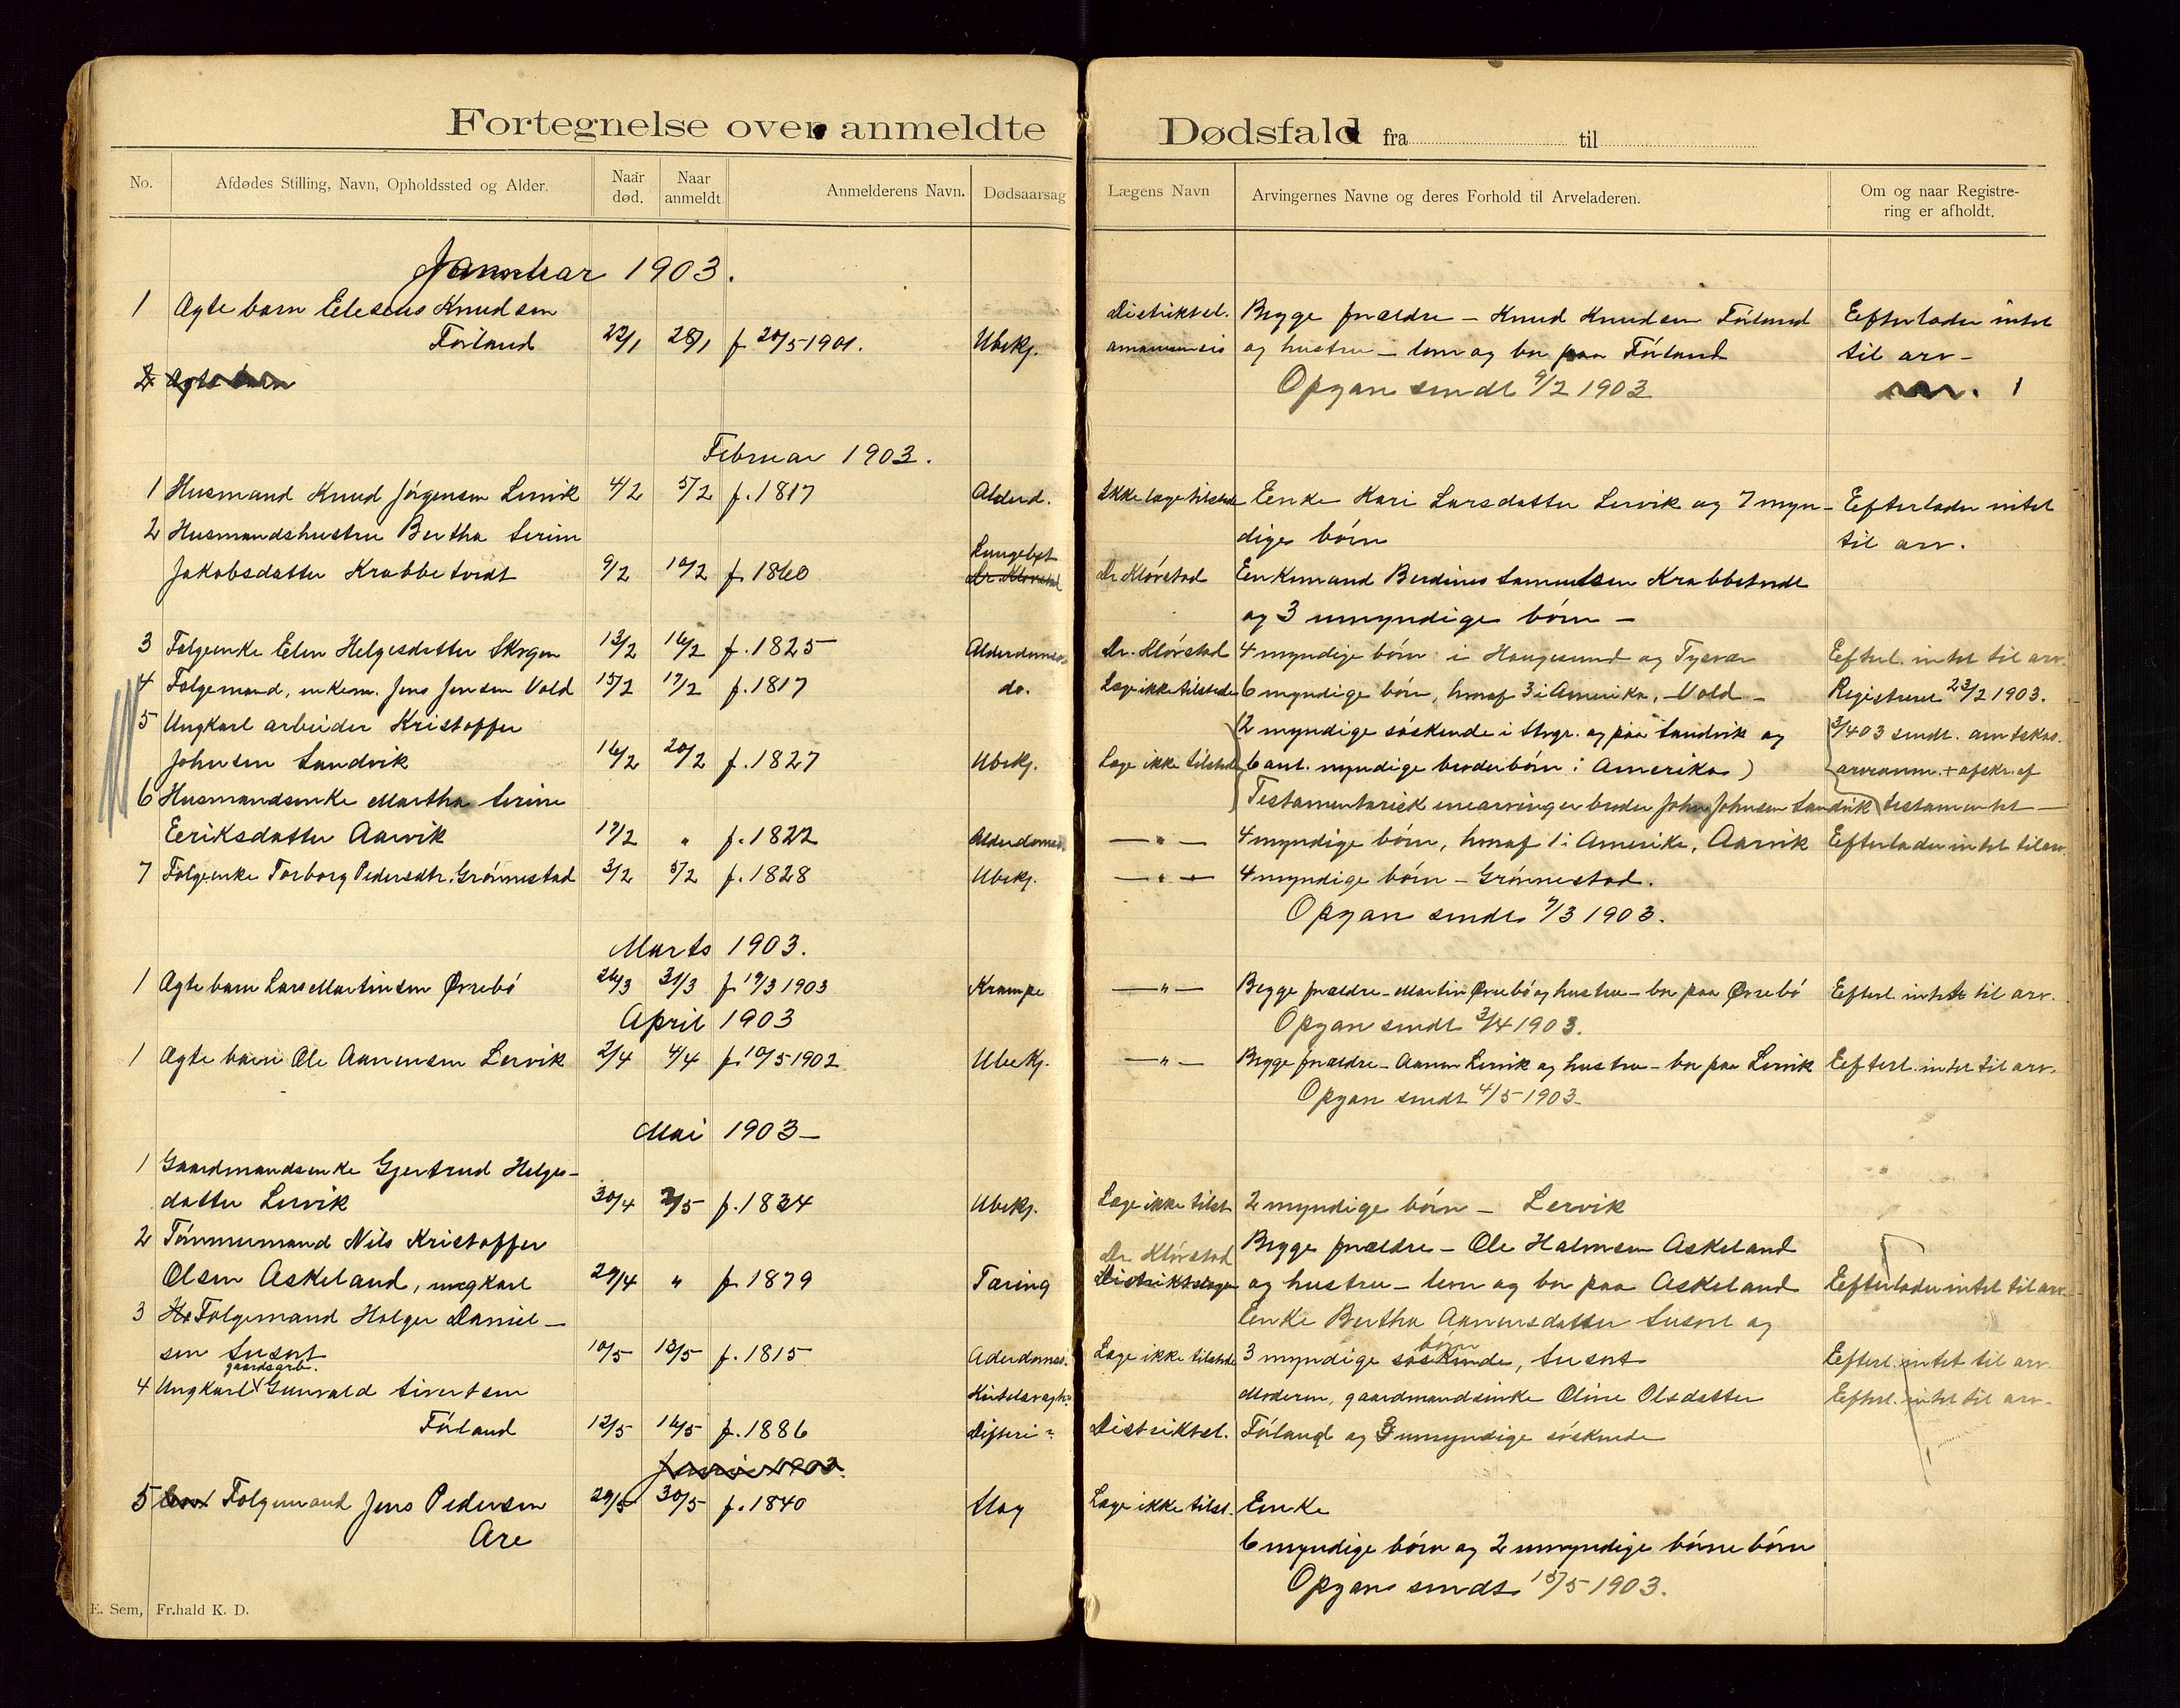 Fortegnelse over anmeldte Dødsfald fra til
No. Afdødes Stilling, Navn, Opholdssted og Alder. Naar død. Naar anmeldt. Anmelderens Navn. Dødsaarsag Lægens Navn Arvingernes Navne og deres Forhold til Arveladeren. Om og naar Registrering er afholdt.
Januar 1903.
1 Ægte barn Eleseus Knudsen Distriktsl. Begge forældre – Knud Knudsen Förland Efterlader intet
Förland 22/1 28/1 f 20/5 1901. Ubekj. amanuensis og hustru – lever og bor paa Förland til arv –
2 Ægte barn Opgave sendt 9/2 1903 1
Februar 1903.
1 Husmand Knud Jörgensen Lervik 4/2 5/2 f. 1817 Alderd. Ikke læge tilstede Enke Kari Larsdatter Lervik og 7 myn- Efterlader intet
2 Husmandshustru Bertha Serine dige börn til arv.
Jakobsdatter Krabbetvedt 9/2 10/2 f. 1860 Lungebet Dr Klövstad Dr Klövstad Enkemand Berdines Samuelsen Krabbetvedt
og 3 umyndige börn –
3 Folgeenke Elen Helgesdatter Skogen 13/2 16/2 f. 1825 Alderdomssv. Dr. Klövstad 4 myndige börn i Haugesund og Tysvær Efterl. intet til arv.
4 Folgemand, enkem. Jens Jensen Vold 15/2 17/2 f. 1817 do. Læge ikke tilstede 6 myndige börn, hvoraf 3 i Amerika. Vold – Registreret 23/2 1903.
5 Ungkarl arbeider Kristoffer (2 myndige söskende i Stvgr. og paa Sandvik og 3/4 03 sendt. amtskas.
Johnsen Sandvik 16/2 20/2 f. 1827 Ubekj. Læge ikke tilstede 6 ant. myndige broderbörn i Amerika) arveanm. + afskr. af
6 Husmandsenke Martha Serine Testamentarisk enearvinger broder John Johnsen Sandvik testamentet –
Eeriksdatter Aarvik 17/2 " f. 1822 Alderdomssv. – " – 4 myndige börn, hvoraf 1 i Amerika, Aarvik Efterlader intet til arv.
7 Folgeenke Torborg Pedersdtr. Grönnestad 3/2 5/2 f. 1828 Ubekj. – " – 4 myndige börn – Grönnestad.
Opgave sendt 9/3 1903.
Marts 1903.
1 Ægte barn Lars Martinsen Øvrebö 26/3 31/3 f 19/3 1903 Krampe – " – Begge forældre – Martin Øvrebö og hustru – bor paa Øvrebö Efterl. intet til arv.
April 1903 Opgave sendt 3/4 1903.
1 Ægte barn Ole Aanensen Lervik 2/4 4/4 f. 10/5 1902 Ubekj. – " – Begge forældre – Aanen Lervik og hustru – bor paa Lervik Efterl. intet til arv.
Opgave sendt 4/5 1903.
Mai 1903 –
1 Gaardmandsenke Gjertrud Helges-
datter Lervik 30/4 2/5 f. 1834 Ubekj. Læge ikke tilst. 2 myndige börn – Lervik
2 Tömmermand Nils Kristoffer Dr. Klövstad Begge forældre – Ole Halvorsen Askeland
Olsen Askeland, ungkarl 29/4 " f 1879 Tæring Distriktslægen og hustru – lever og bor paa Askeland Efterlader intet til arv –
3 Folgemand Holger Daniel- Enke Bertha Aanensdatter Susort og
sen Susort 10/5 13/5 f. 1815 Aderdomss. Læge ikke tilstede 3 myndige söskende börn, Susort Efterl. intet til arv
4 Ungkarl gaardsarb. Gunvald Sivertsen Moderen, gaardmandsenke Oline Olsdatter Efterl. intet til arv.
Förland 12/5 16/5 f. 1886 Difteri Distriktsl. Förland og 3 umyndige söskende
Juni 1903.
5 Folgemand Jens Pedersen 29/5 30/5 f. 1840 Slag Læge ikke tilst. Enke
Are 6 myndige börn og 2 umyndige börnebörn
Opgave sendt 15/5 1903.
E. Sem, Fr.hald K. D.